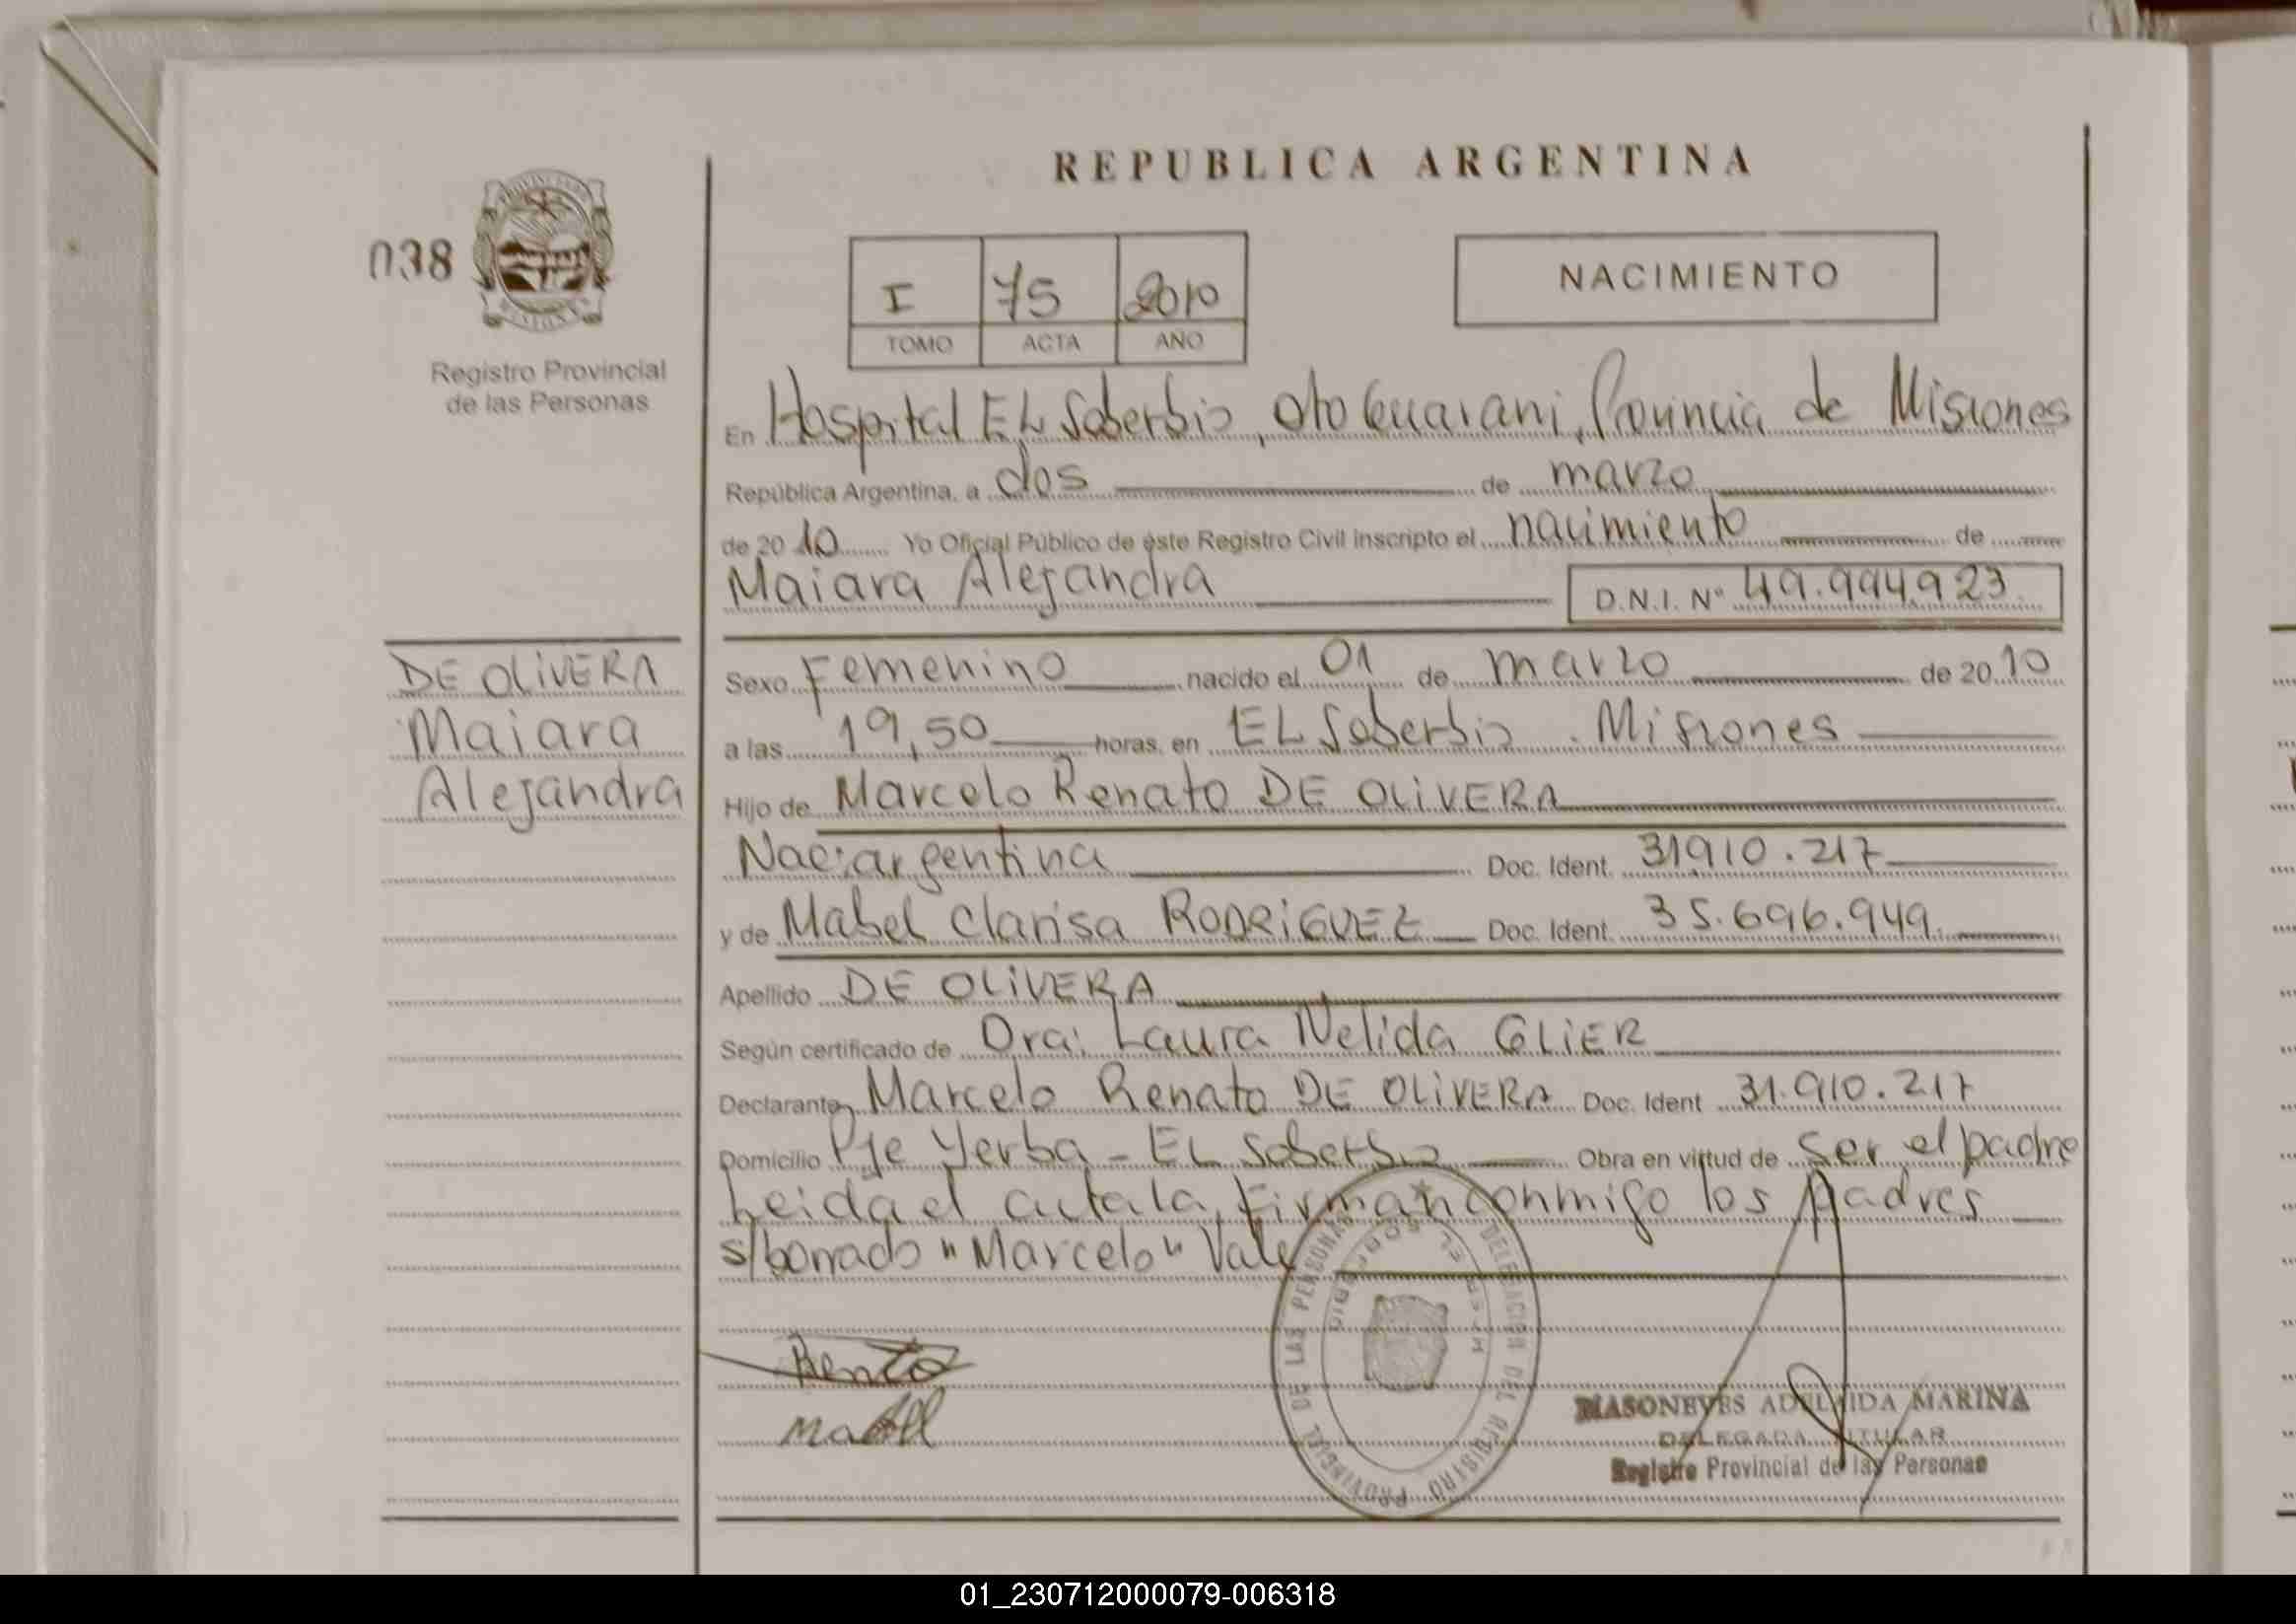 REPUBLICA ARGENTINA
038
Registro Provincial
de las Personas
I 75 2010
TOMO ACTA AÑO
NACIMIENTO
En Hospital EL Soberbio, Dto Guarani, Provincia de Misiones
República Argentina, a dos de marzo
de 20 10 Yo Oficial Público de éste Registro Civil inscripto el nacimiento de
Maiara Alejandra D.N.I. Nº 49.994.923
DE OLIVERA
Maiara
Alejandra
Sexo Femenino nacido el 01 de marzo de 20 10
a las 19,50 horas, en EL Soberbio . Misiones
Hijo de Marcelo Renato DE OLIVERA
Nac: argentina Doc. Ident. 31910.217
y de Mabel Clarisa RODRIGUEZ Doc. Ident. 35.696.949
Apellido DE OLIVERA
Según certificado de Dra: Laura Nelida GLIER
Declarante Marcelo Renato DE OLIVERA Doc. Ident 31.910.217
Domicilio Pje Yerba - EL Soberbio Obra en virtud de ser el padre
Leida el acta la firman conmigo los padres
s/borrado "Marcelo" Vale
DELEGACION DEL REGISTRO PROVINCIAL DE LAS PERSONAS
EL SOBERBIO
MASONEVES ADELAIDA MARINA
DELEGADA TITULAR
Registro Provincial de las Personas
01_230712000079-006318